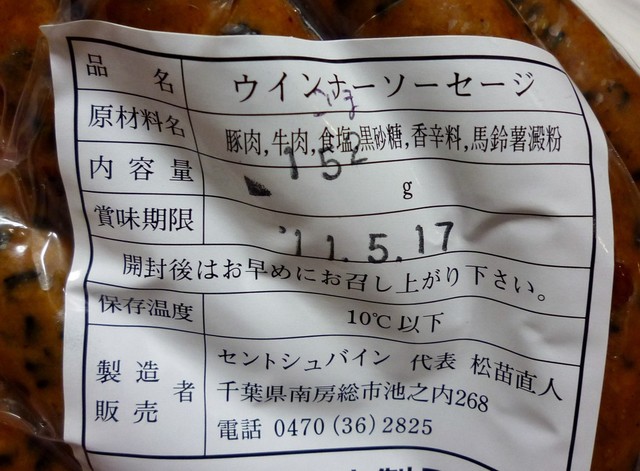 品名 ウインナーソーセージ
原材料名 豚肉,牛肉,食塩,黒砂糖,香辛料,馬鈴薯澱粉
内容量 152 g
賞味期限 '11.5.17
開封後はお早めにお召し上がり下さい。
保存温度 10℃以下
製造販売者 セントシュバイン 代表 松苗直人
千葉県南房総市池之内268
電話 0470 (36) 2825